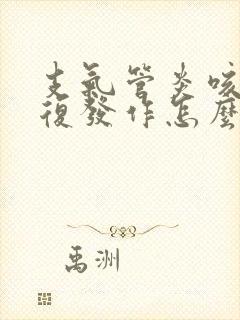 支氣管炎咳
復發作怎麼
禹洲